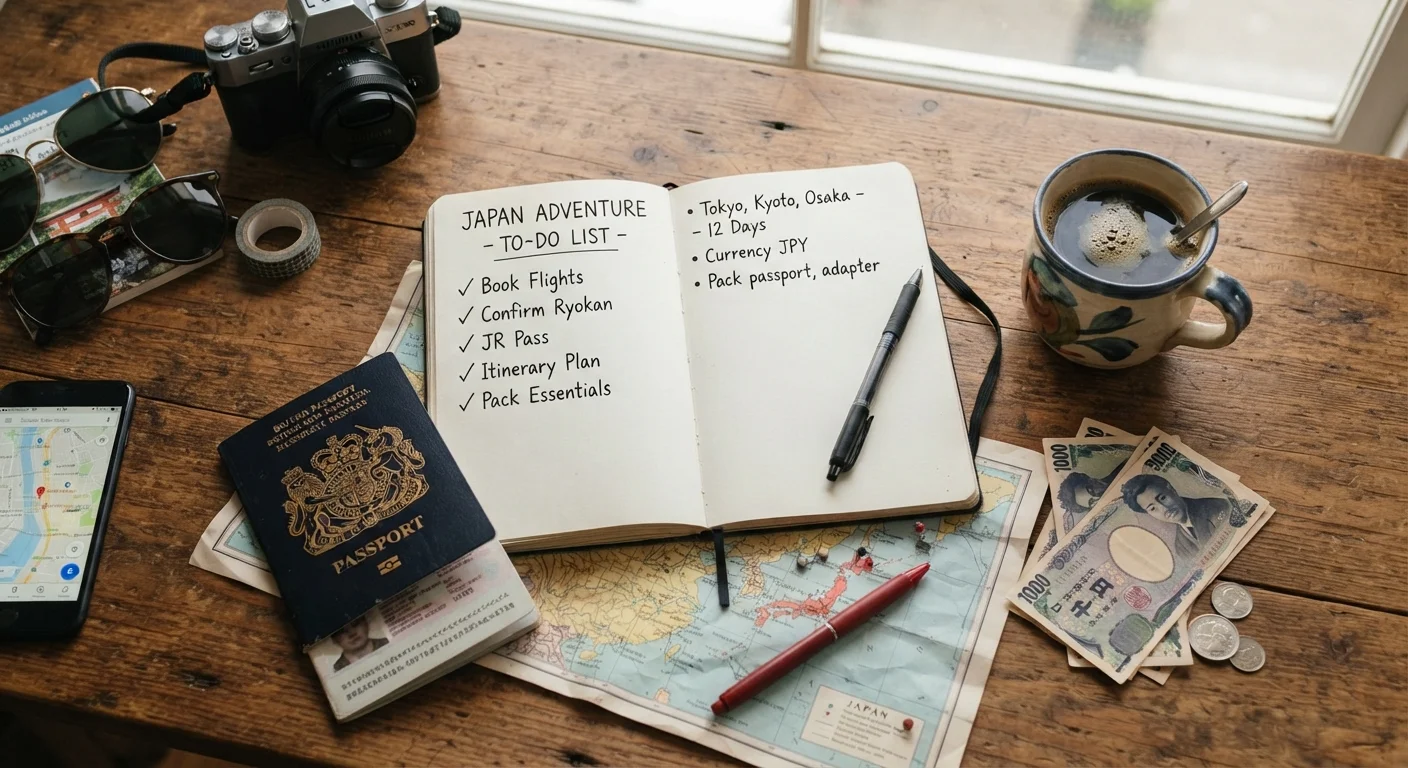 JAPAN ADVENTURE
- TO-DO LIST -
✓ Book Flights
✓ Confirm Ryokan
✓ JR Pass
✓ Itinerary Plan
✓ Pack Essentials
• Tokyo, Kyoto, Osaka –
– 12 Days
• Currency JPY
• Pack passport, adapter
PASSPORT
1000
1000
1000
JAPAN